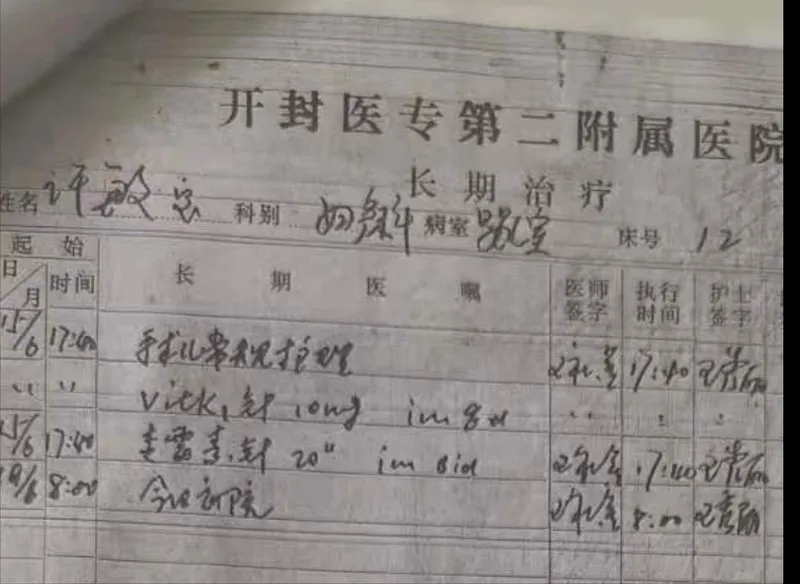 开封医专第二附属医院
长期治疗
姓名 许敏 科别 妇产科 病室 婴室 床号 12
起始 长期医嘱 医师签字 执行时间 护士签字
日/月 时间
15/6 17:40 手术儿常规护理 17:40
〃 〃 Vitk1针 10mg im qd 〃 〃 〃
15/6 17:40 青针 20" im Bid 17:40
19/6 8:00 今日出院 8:00